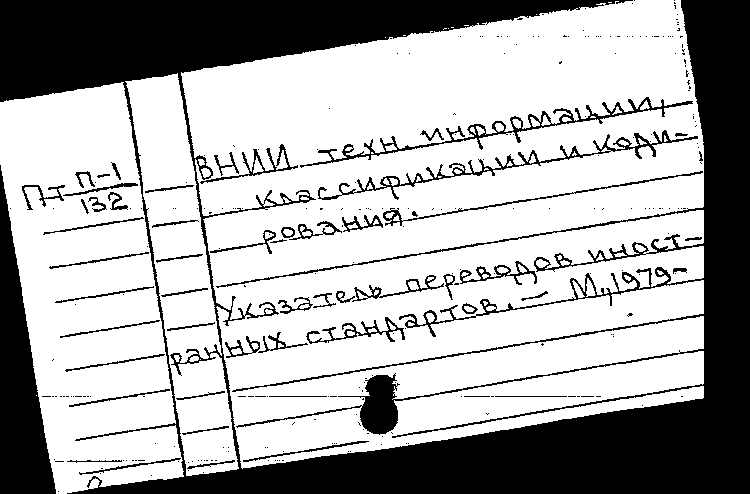 ВНИИ техн. информации,
ПТ П-1/132
классификации и коди-
рования.
Указатель переводов иност-
ранных стандартов. — М., 1979-